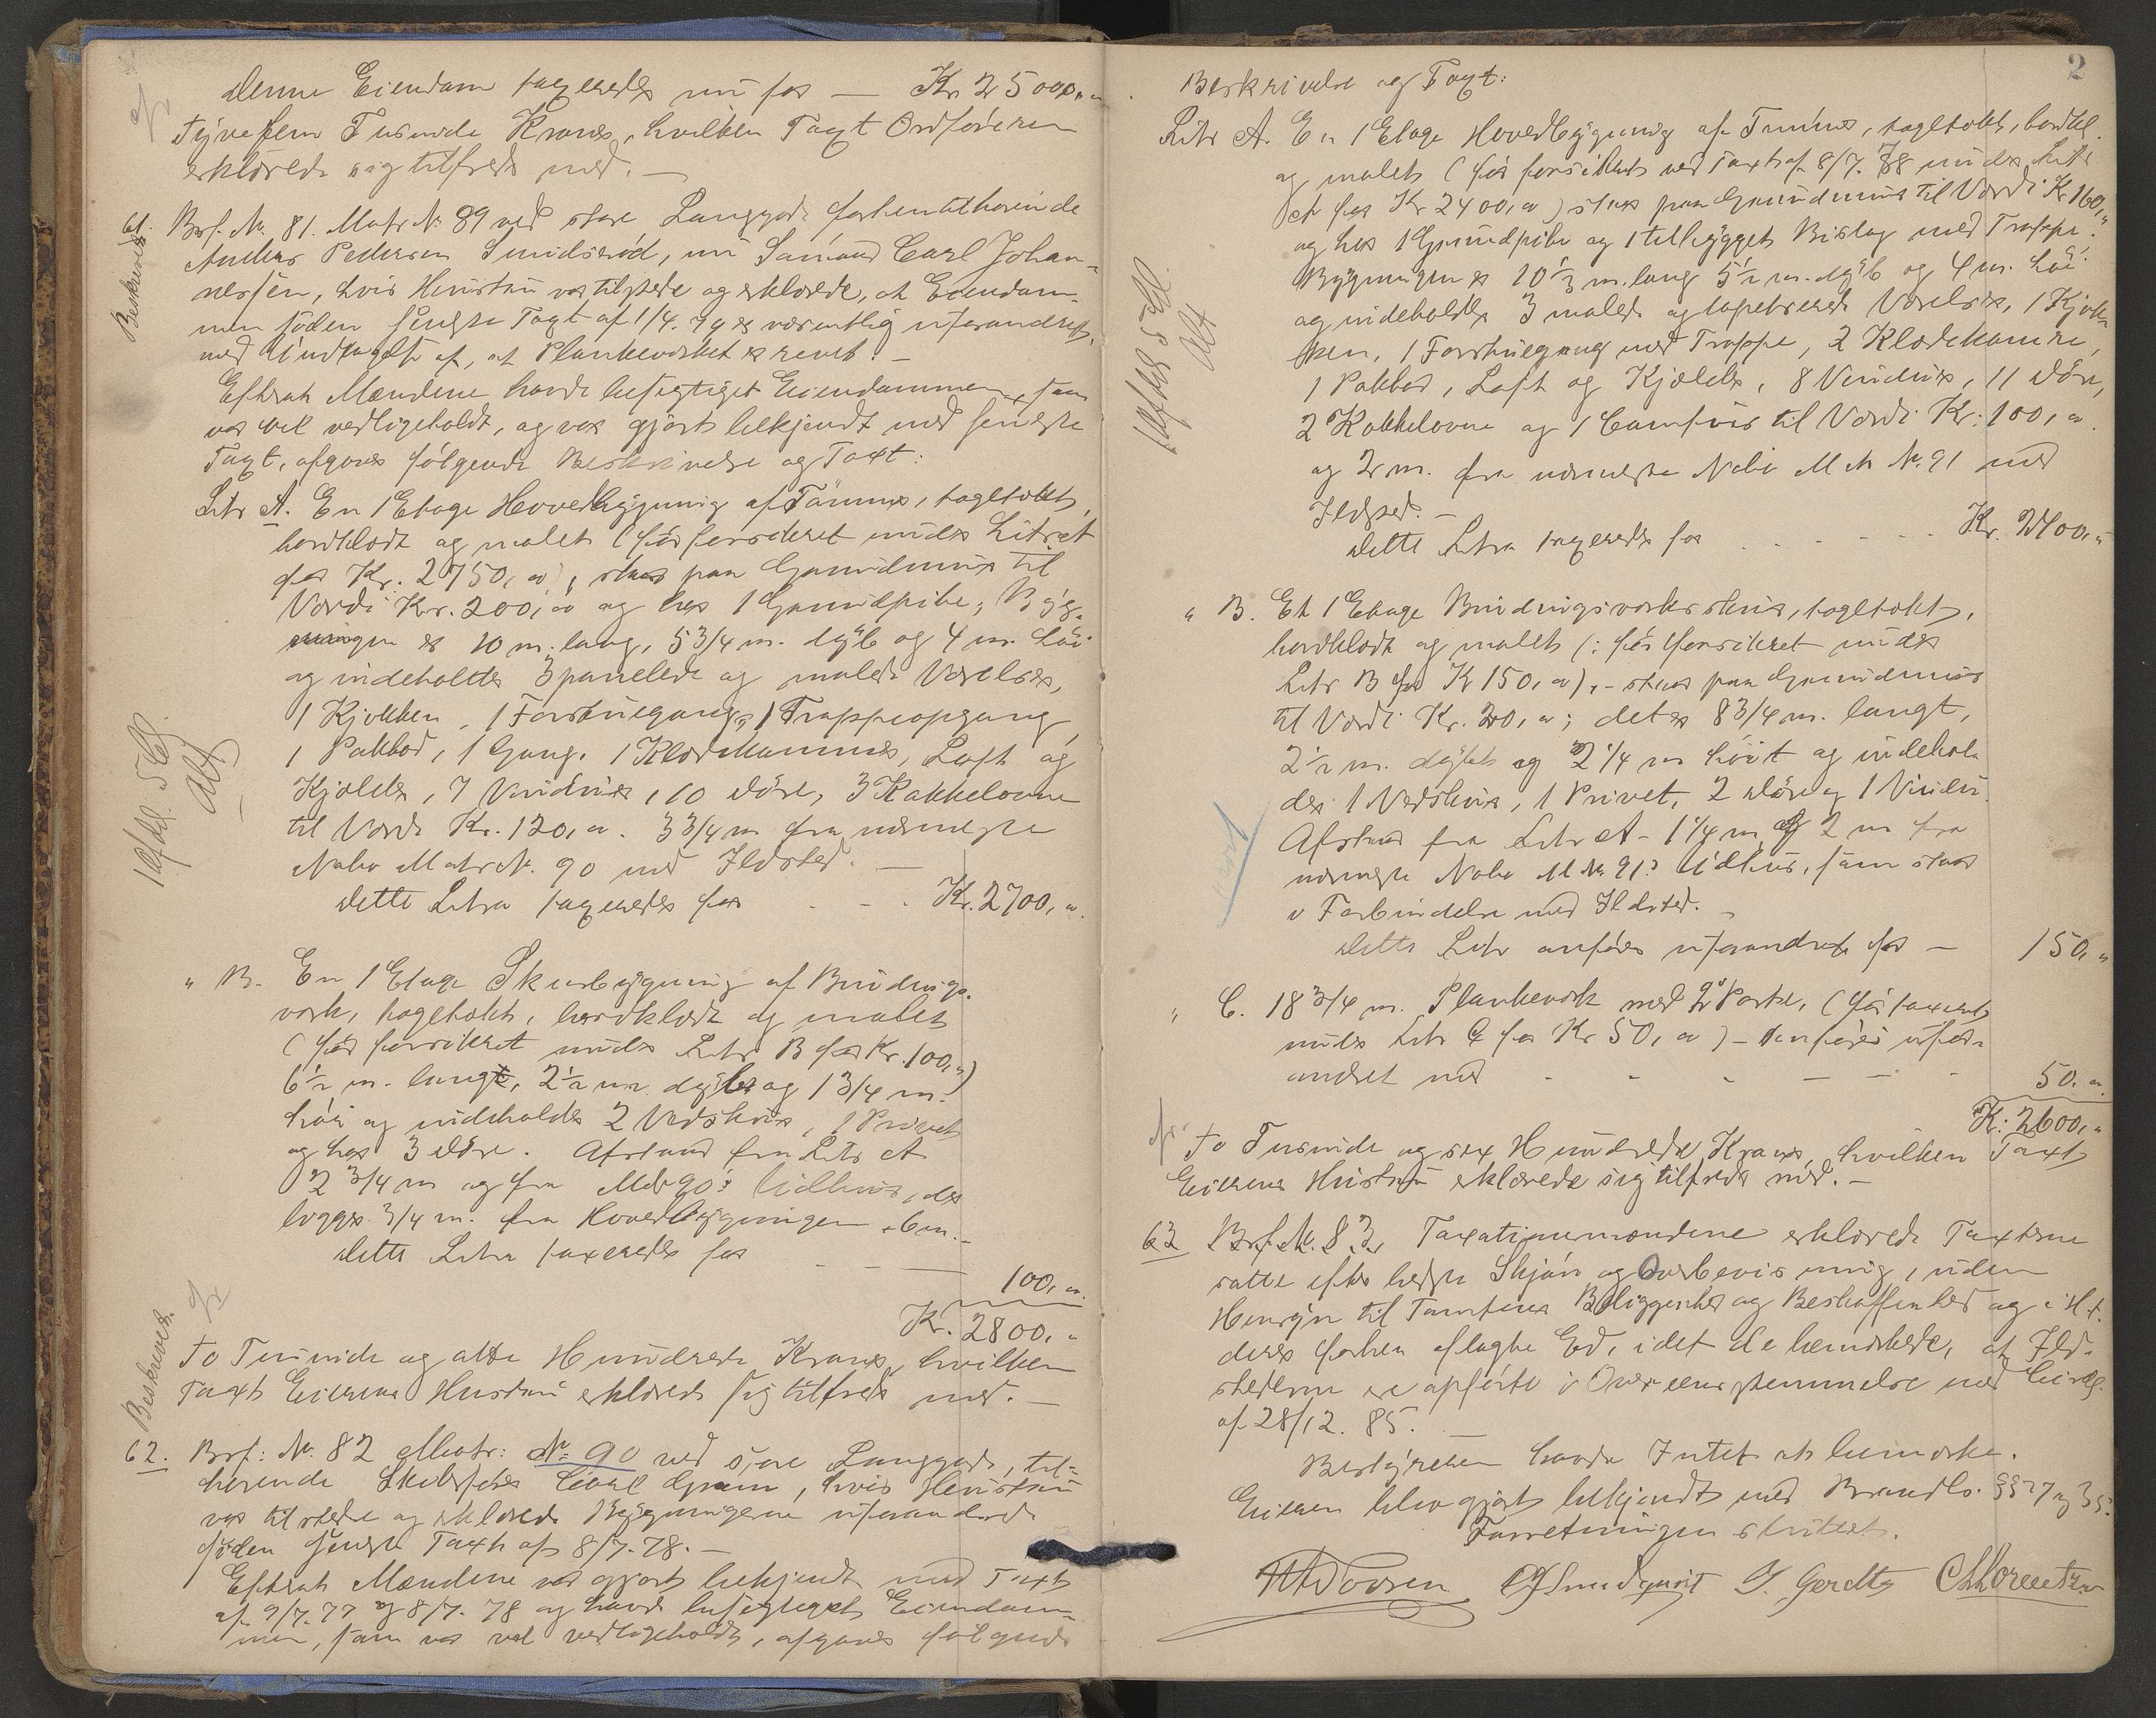 denne Eiendom taxeredes nu for — Kr. 25000,"
Tyvefem Tusinde Kroner, hvilken Taxt Ordføreren
erklærede sig tilfreds med. —
61. Brf. No. 81. Matr. No. 89 ved store Langgade forhen tilhørende
Beskrevet
Anders Pedersen Smidsrød, nu Sømand Carl Johan-
nessen, hvis Hustru var tilstede og erklærede, at Eiendom-
men siden seneste Taxt af 1/4. 79 er væsentlig uforandret,
med Undtagelse af, at Plankeværket er revet. —
Efterat Mændene havde besigtiget Eiendommen, som
var vel vedligeholdt, og var gjort bekjendt med seneste
Taxt, afgaves følgende Beskrivelse og Taxt:
Litr A. En 1 Etage Hovedbygning af Tømmer, tagtækket,
bordklædt og malet (før forsikret under Litra A
for Kr. 2750, "), staar paa Grundmur til
Værdi Kr. 200, " og har 1 Grundpibe; Byg-
ningen er 10 m. lang, 5 3/4 m. dyb og 4 m. høi
og indeholder 3 panelede og malede Værelser,
1 Kjøkken, 1 Forstuegang, 1 Trappeopgang,
1 Pakbod, 1 Gang, 1 Klædekammer, Loft og
Kjælder, 7 Vinduer, 10 Døre, 3 Kakkelovne
til Værdi Kr. 120, ". 3 3/4 m fra nærmeste
Nabo Matr. N. 90 med Ildsted. —
Dette Litra taxeredes for - - - Kr. 2700, "
" B. En 1 Etage Skurbygning af Bindings-
værk, tagtækket, bordklædt og malet
(før forsikret under Litr B for Kr. 100, ")
6 1/2 m. langt, 2 1/2 m dybt og 1 3/4 m.
høi og indeholder 2 Vedskur, 1 Privet
og har 3 Døre. Afstand fra Litr A
2 3/4 m og fra M No 90's Udhus, der
ligger 3/4 m. fra Hovedbygningen, 6 m. —
Dette Litra taxeredes for - - — 100, "
Kr. 2800, "
Beskrevet.
To Tusinde og otte Hundrede Kroner, hvilken
Taxt Eierens Hustru erklærede sig tilfreds med. —
62. Brf: No. 82 Matr: No 90 ved store Langgade, til-
hørende Skibsfører, hvis Hustru
var tilstede og erklærede Bygningerne uforandrede
siden seneste Taxt af 8/7. 78. —
Efterat Mændene var gjort bekjendt med Taxt
af 9/7. 77 og 8/7. 78 og havde besigtiget Eiendom-
men, som var vel vedligeholdt, afgaves følgende
2
Beskrivelse og Taxt:
Litr A. En 1 Etage Hovedbygning af Tømmer, tagtækket, bordkl.
og malet (før forsikret ved Taxt af 8/7. 78 under Litr
A for Kr 2400, ") staar paa Grundmur til Værdi Kr 160, "
og har 1 Grundpibe og 1 tilbygget Bislag med Trappe.
Bygningen er 10 1/3 m. lang 5 1/2 m. dyb og 4 m. høi
og indeholder 3 malede og tapetserede Værelser, 1 Kjøk-
ken, 1 Forstuegang med Trappe, 2 Klædekamre,
1 Pakbod, Loft og Kjælder, 8 Vinduer, 11 Døre,
2 Kakkelovne og 1 Comfur til Værdi Kr: 100, "
og 2 m. fra nærmeste Nabo M No. 91 med
Ildsted. —
Dette Litra taxeredes for - - - - - - Kr. 2400, "
" B. Et 1 Etage Bindingsværks skur, tagtækket,
bordklædt og malet (: før forsikret under
Litr B for Kr 150, "), - staar paa Grundmur
til Værdi Kr. 20, "; det er 8 3/4 m. langt,
2 1/2 m. dybt og 2 1/4 m høit og indehol-
der 1 Vedskur, 1 Privet, 2 Døre og 1 Vindu.
Afstand fra Litr A - 1 1/4 m, og 2 m fra
nærmeste Nabo M No. 91s Udhus, som staar
i Forbindelse med Ildsted. —
Dette Litr anføres uforandret for — 150, "
" C. 18 3/4 m. Plankeværk med 2 Porte, (før taxeret
under Litr C for Kr 50, ") - anføres ufor-
andret med - - - — — - 50, "
Kr: 2600, "
To Tusinde og sex Hundrede Kroner, hvilken Taxt
Eierens Hustru erklærede sig tilfreds med. —
63 Brf. N. 83. Taxationsmændene erklærede Taxterne
satte efter bedste Skjøn og Overbevisning, uden
Hensyn til Tomtens Beliggenhed og Beskaffenhed og i H. t.
deres forhen aflagte Ed, idet de bemærkede, at Ild-
stederne ere opførte i Overensstemmelse med
af 28/12. 85.
Bestyreren havde Intet at bemærke.
Eieren blev gjort bekjendt med Brandlo. §§ 27 og 35.
Forretningen sluttet.
S. Gerdtz